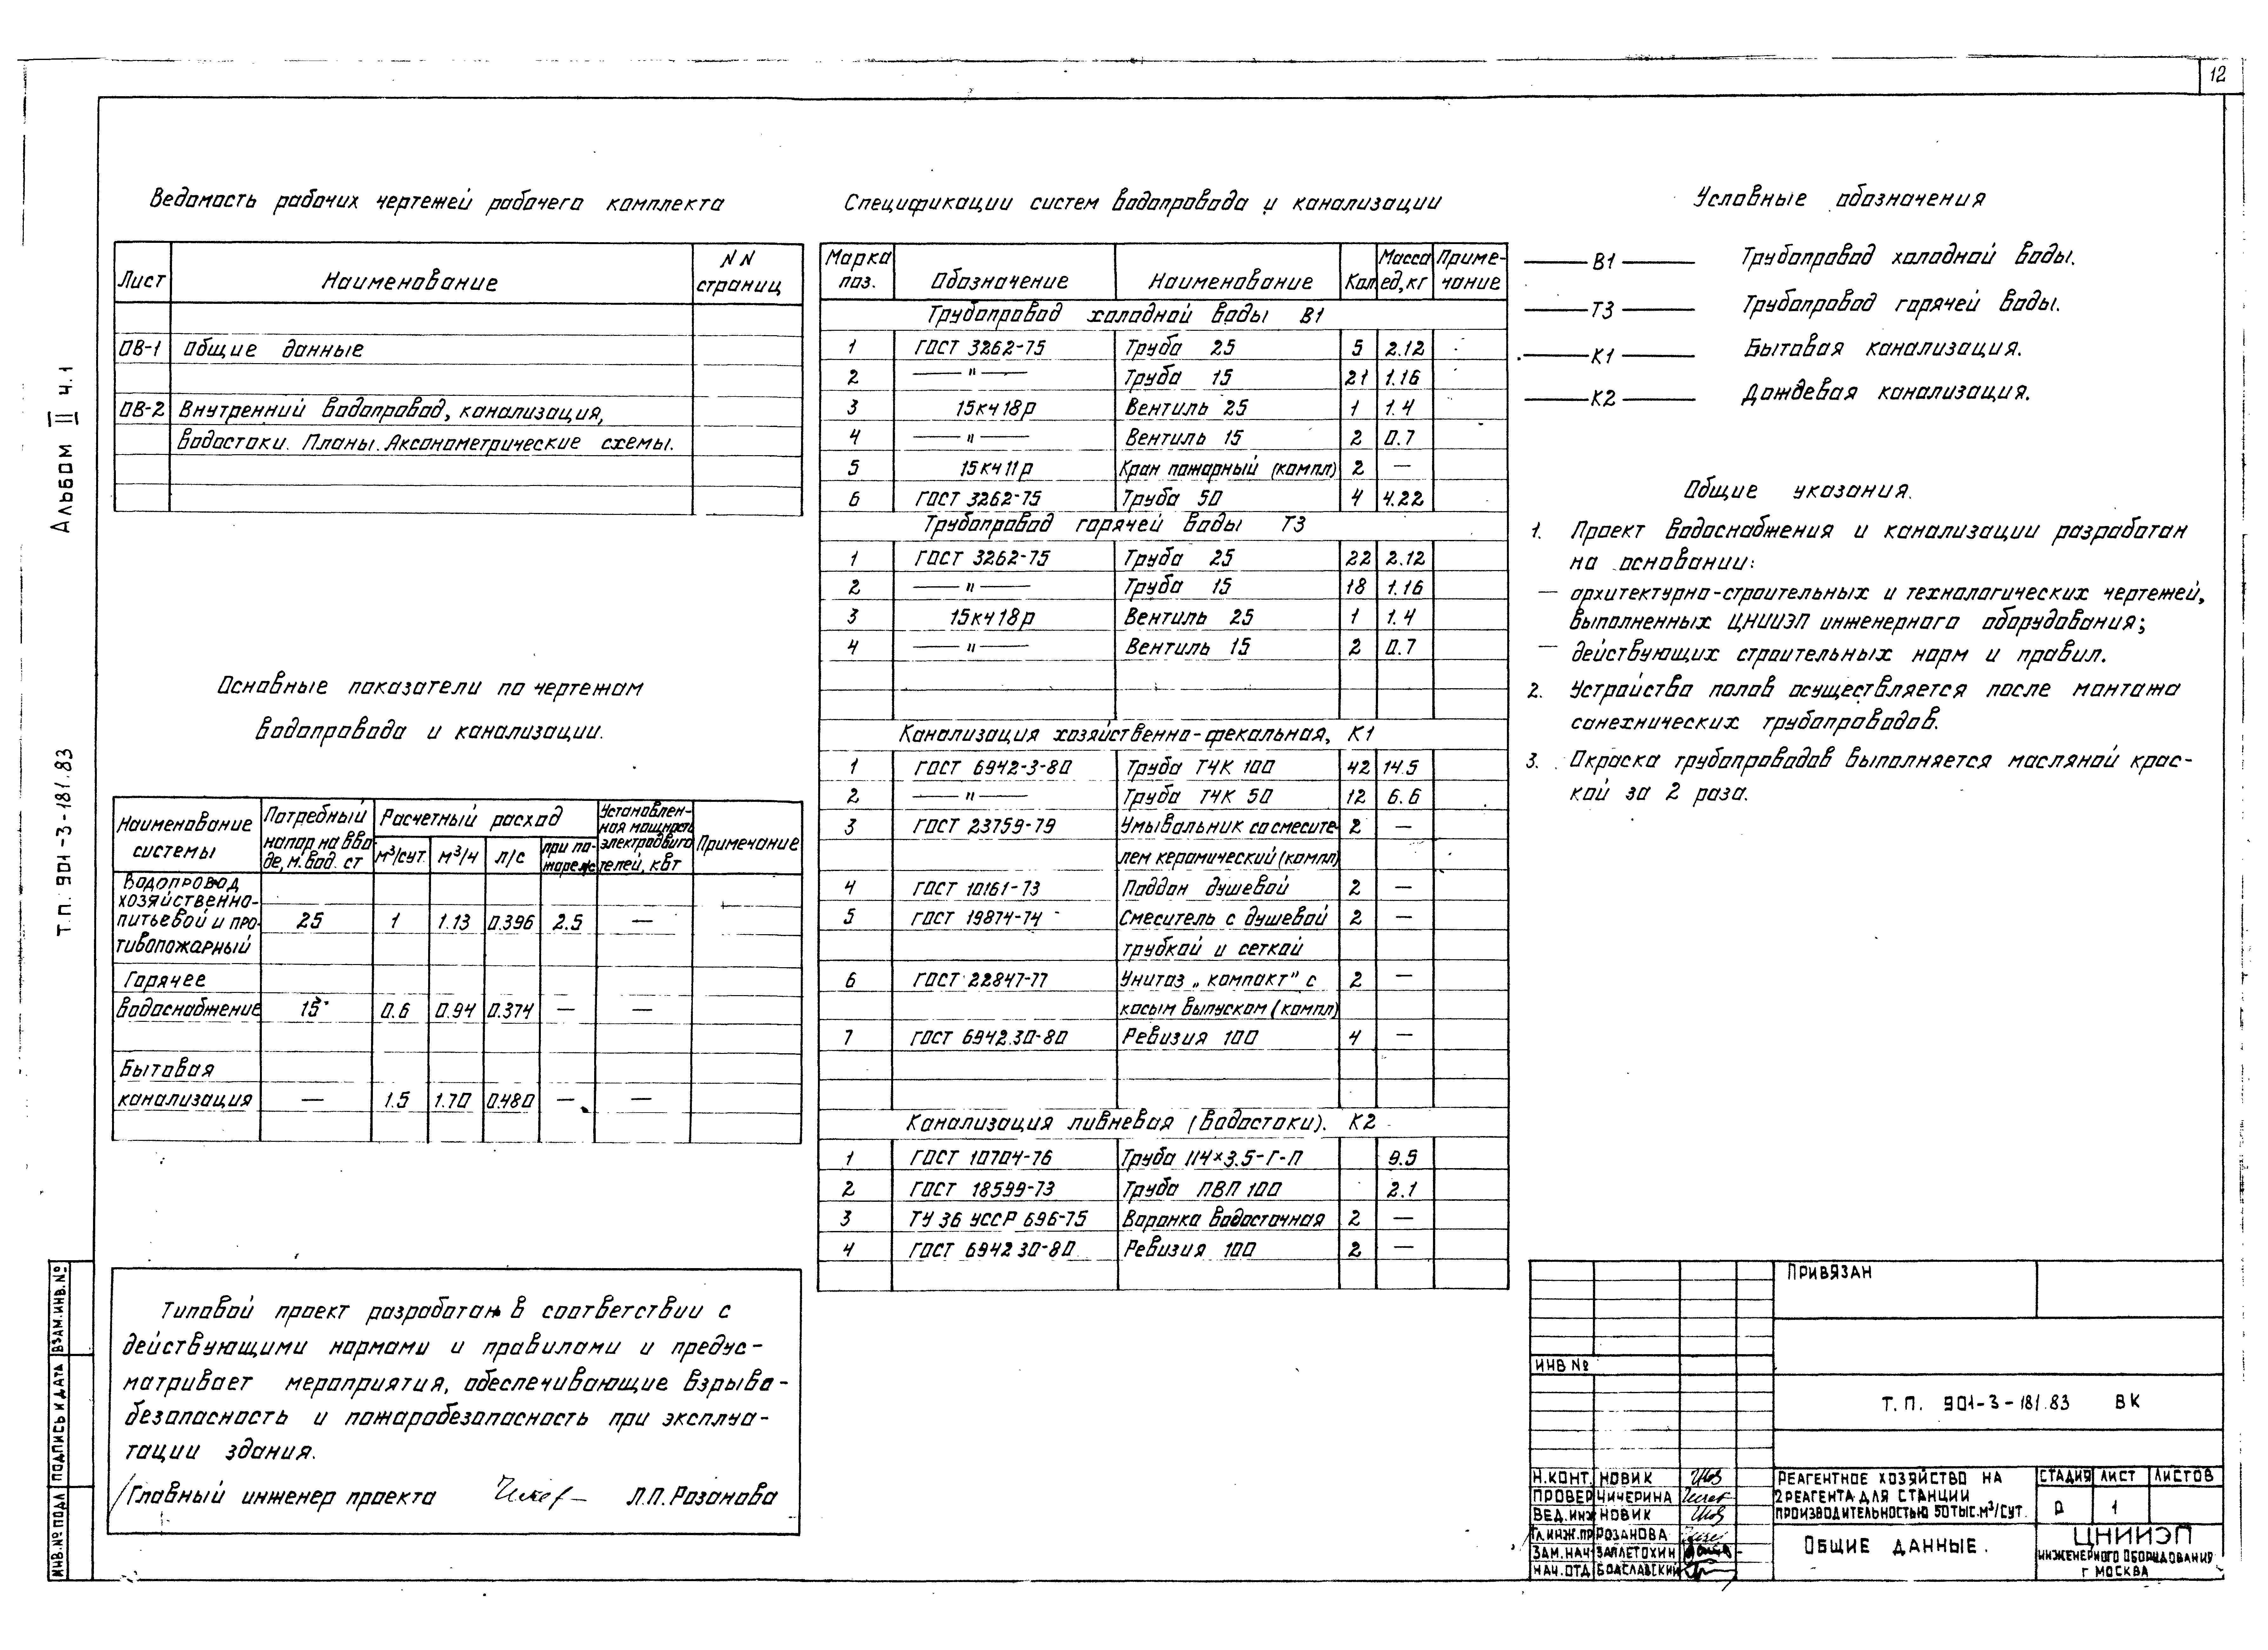 12
Альбом II ч.1
Т.П. 901-3-181.83
Ведомость рабочих чертежей рабочего комплекта
Лист Наименование NN страниц
ОВ-1 Общие данные
ОВ-2 Внутренний водопровод, канализация,
водостоки. Планы. Аксонометрические схемы.
Основные показатели по чертежам
водопровода и канализации.
Наименование системы Потребный напор на вводе, м. вод. ст Расчетный расход Установленная мощность электродвигателей, квт Примечание
м³/сут. м³/ч л/с при пожаре л/с
Водопровод
хозяйственно-
питьевой и про- 25 1 1.13 0.396 2.5 —
тивопожарный
Горячее
водоснабжение 15 0.6 0.94 0.374 — —
Бытовая
канализация — 1.5 1.70 0.480 — —
Типовой проект разработан в соответствии с
действующими нормами и правилами и предус-
матривает мероприятия, обеспечивающие взрыво-
безопасность и пожаробезопасность при эксплуа-
тации здания.
Главный инженер проекта Л.П. Розанова
Спецификации систем водопровода и канализации
Марка поз. Обозначение Наименование Кол Масса ед, кг Примечание
Трубопровод холодной воды В1
1 ГОСТ 3262-75 Труба 25 5 2.12
2 —"— Труба 15 21 1.16
3 15кч18р Вентиль 25 1 1.4
4 —"— Вентиль 15 2 0.7
5 15кч11р Кран пожарный (компл) 2 —
6 ГОСТ 3262-75 Труба 50 4 4.22
Трубопровод горячей воды Т3
1 ГОСТ 3262-75 Труба 25 22 2.12
2 —"— Труба 15 18 1.16
3 15кч18р Вентиль 25 1 1.4
4 —"— Вентиль 15 2 0.7
Канализация хозяйственно-фекальная, К1
1 ГОСТ 6942-3-80 Труба ТЧК 100 42 14.5
2 —"— Труба ТЧК 50 12 6.6
3 ГОСТ 23759-79 Умывальник со смесите- 2 —
лем керамический (компл)
4 ГОСТ 10161-73 Поддон душевой 2 —
5 ГОСТ 19874-74 Смеситель с душевой 2 —
трубкой и сеткой
6 ГОСТ 22847-77 Унитаз „компакт" с 2 —
косым выпуском (компл)
7 ГОСТ 6942.30-80 Ревизия 100 4 —
Канализация ливневая (водостоки). К2
1 ГОСТ 10704-76 Труба 114×3.5-Г-П 9.5
2 ГОСТ 18599-73 Труба ПВП 100 2.1
3 ТУ 36 УССР 696-75 Воронка водосточная 2 —
4 ГОСТ 6942 30-80 Ревизия 100 2 —
Условные обозначения
В1 Трубопровод холодной воды.
Т3 Трубопровод горячей воды.
К1 Бытовая канализация.
К2 Дождевая канализация.
Общие указания.
1. Проект водоснабжения и канализации разработан
на основании:
— архитектурно-строительных и технологических чертежей,
выполненных ЦНИИЭП инженерного оборудования;
— действующих строительных норм и правил.
2. Устройство полов осуществляется после монтажа
санехнических трубопроводов.
3. Окраска трубопроводов выполняется масляной крас-
кой за 2 раза.
ИНВ.№ ПОДЛ ПОДПИСЬ И ДАТА ВЗАМ.ИНВ.№
ПРИВЯЗАН
ИНВ №
Т.П. 901-3-181.83 ВК
Н.КОНТ. НОВИК
ПРОВЕР ЧИЧЕРИНА
ВЕД.ИНЖ НОВИК
ГЛ.ИНЖ.ПР РОЗАНОВА
ЗАМ.НАЧ ЗАПЛЕТОХИН
НАЧ.ОТД БОДСЛАВСКИЙ
РЕАГЕНТНОЕ ХОЗЯЙСТВО НА
2 РЕАГЕНТА ДЛЯ СТАНЦИИ
ПРОИЗВОДИТЕЛЬНОСТЬЮ 50 ТЫС.М³/СУТ.
СТАДИЯ ЛИСТ ЛИСТОВ
Р 1
ОБЩИЕ ДАННЫЕ.
ЦНИИЭП
ИНЖЕНЕРНОГО ОБОРУДОВАНИЯ
Г МОСКВА